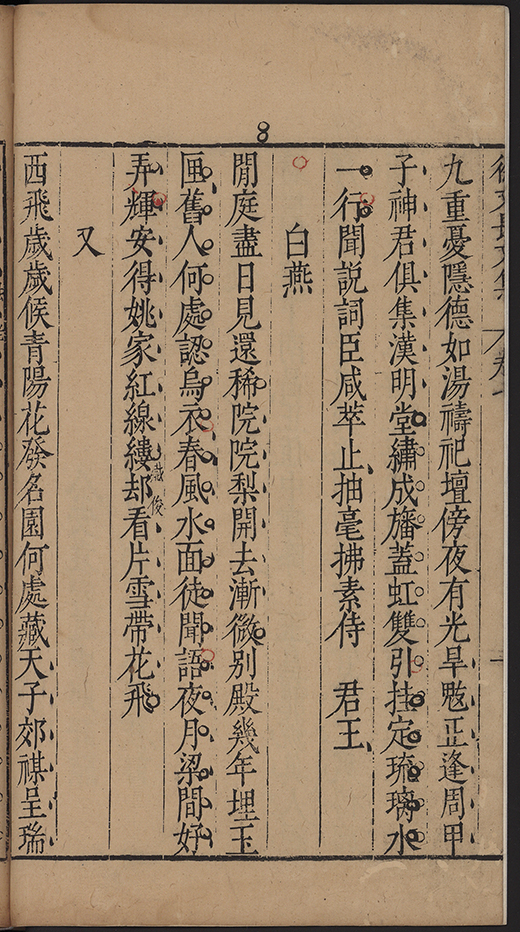 8
徐文長文集
九重憂隱德如湯禱祀壇傍夜有光旱魃正逢周甲
子神君俱集漢明堂繡成旛蓋虹雙引挂定琉璃水
一行聞說詞臣咸萃止抽毫拂素侍　君王
白燕
閒庭盡日見還稀院院梨開去漸微別殿幾年埋玉
匣舊人何處認烏衣春風水面徒聞語夜月梁間好
弄輝安得姚家紅線縷却看片雪帶花飛
又
西飛歲歲候青陽花發名園何處藏天子郊禖呈瑞